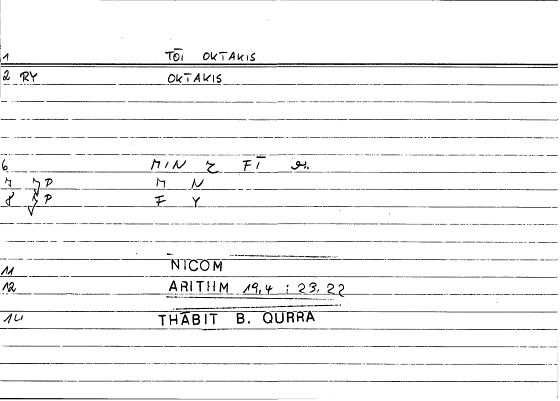 1 TŌI OKTAKIS
2 RY OKTAKIS
6 MIN FĪ
7 P M N
8 P F Y
11 NICOM
12 ARITHM 19,4 : 23,22
14 THĀBIT B. QURRA